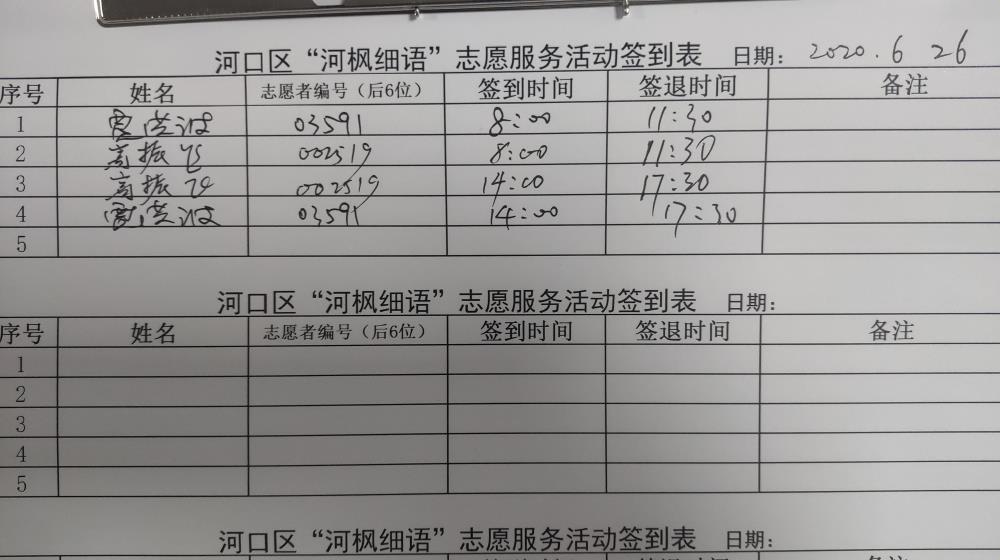 河口区“河枫细语”志愿服务活动签到表 日期: 2020.6 26
序号 姓名 志愿者编号（后6位） 签到时间 签退时间 备注
1 03591 8:00 11:30
2 高振飞 002519 8:00 11:30
3 高振飞 002519 14:00 17:30
4 03591 14:00 17:30
5
河口区“河枫细语”志愿服务活动签到表 日期:
序号 姓名 志愿者编号（后6位） 签到时间 签退时间 备注
1
2
3
4
5
河口区“河枫细语”志愿服务活动签到表 日期:
签到时间 签退时间 备注